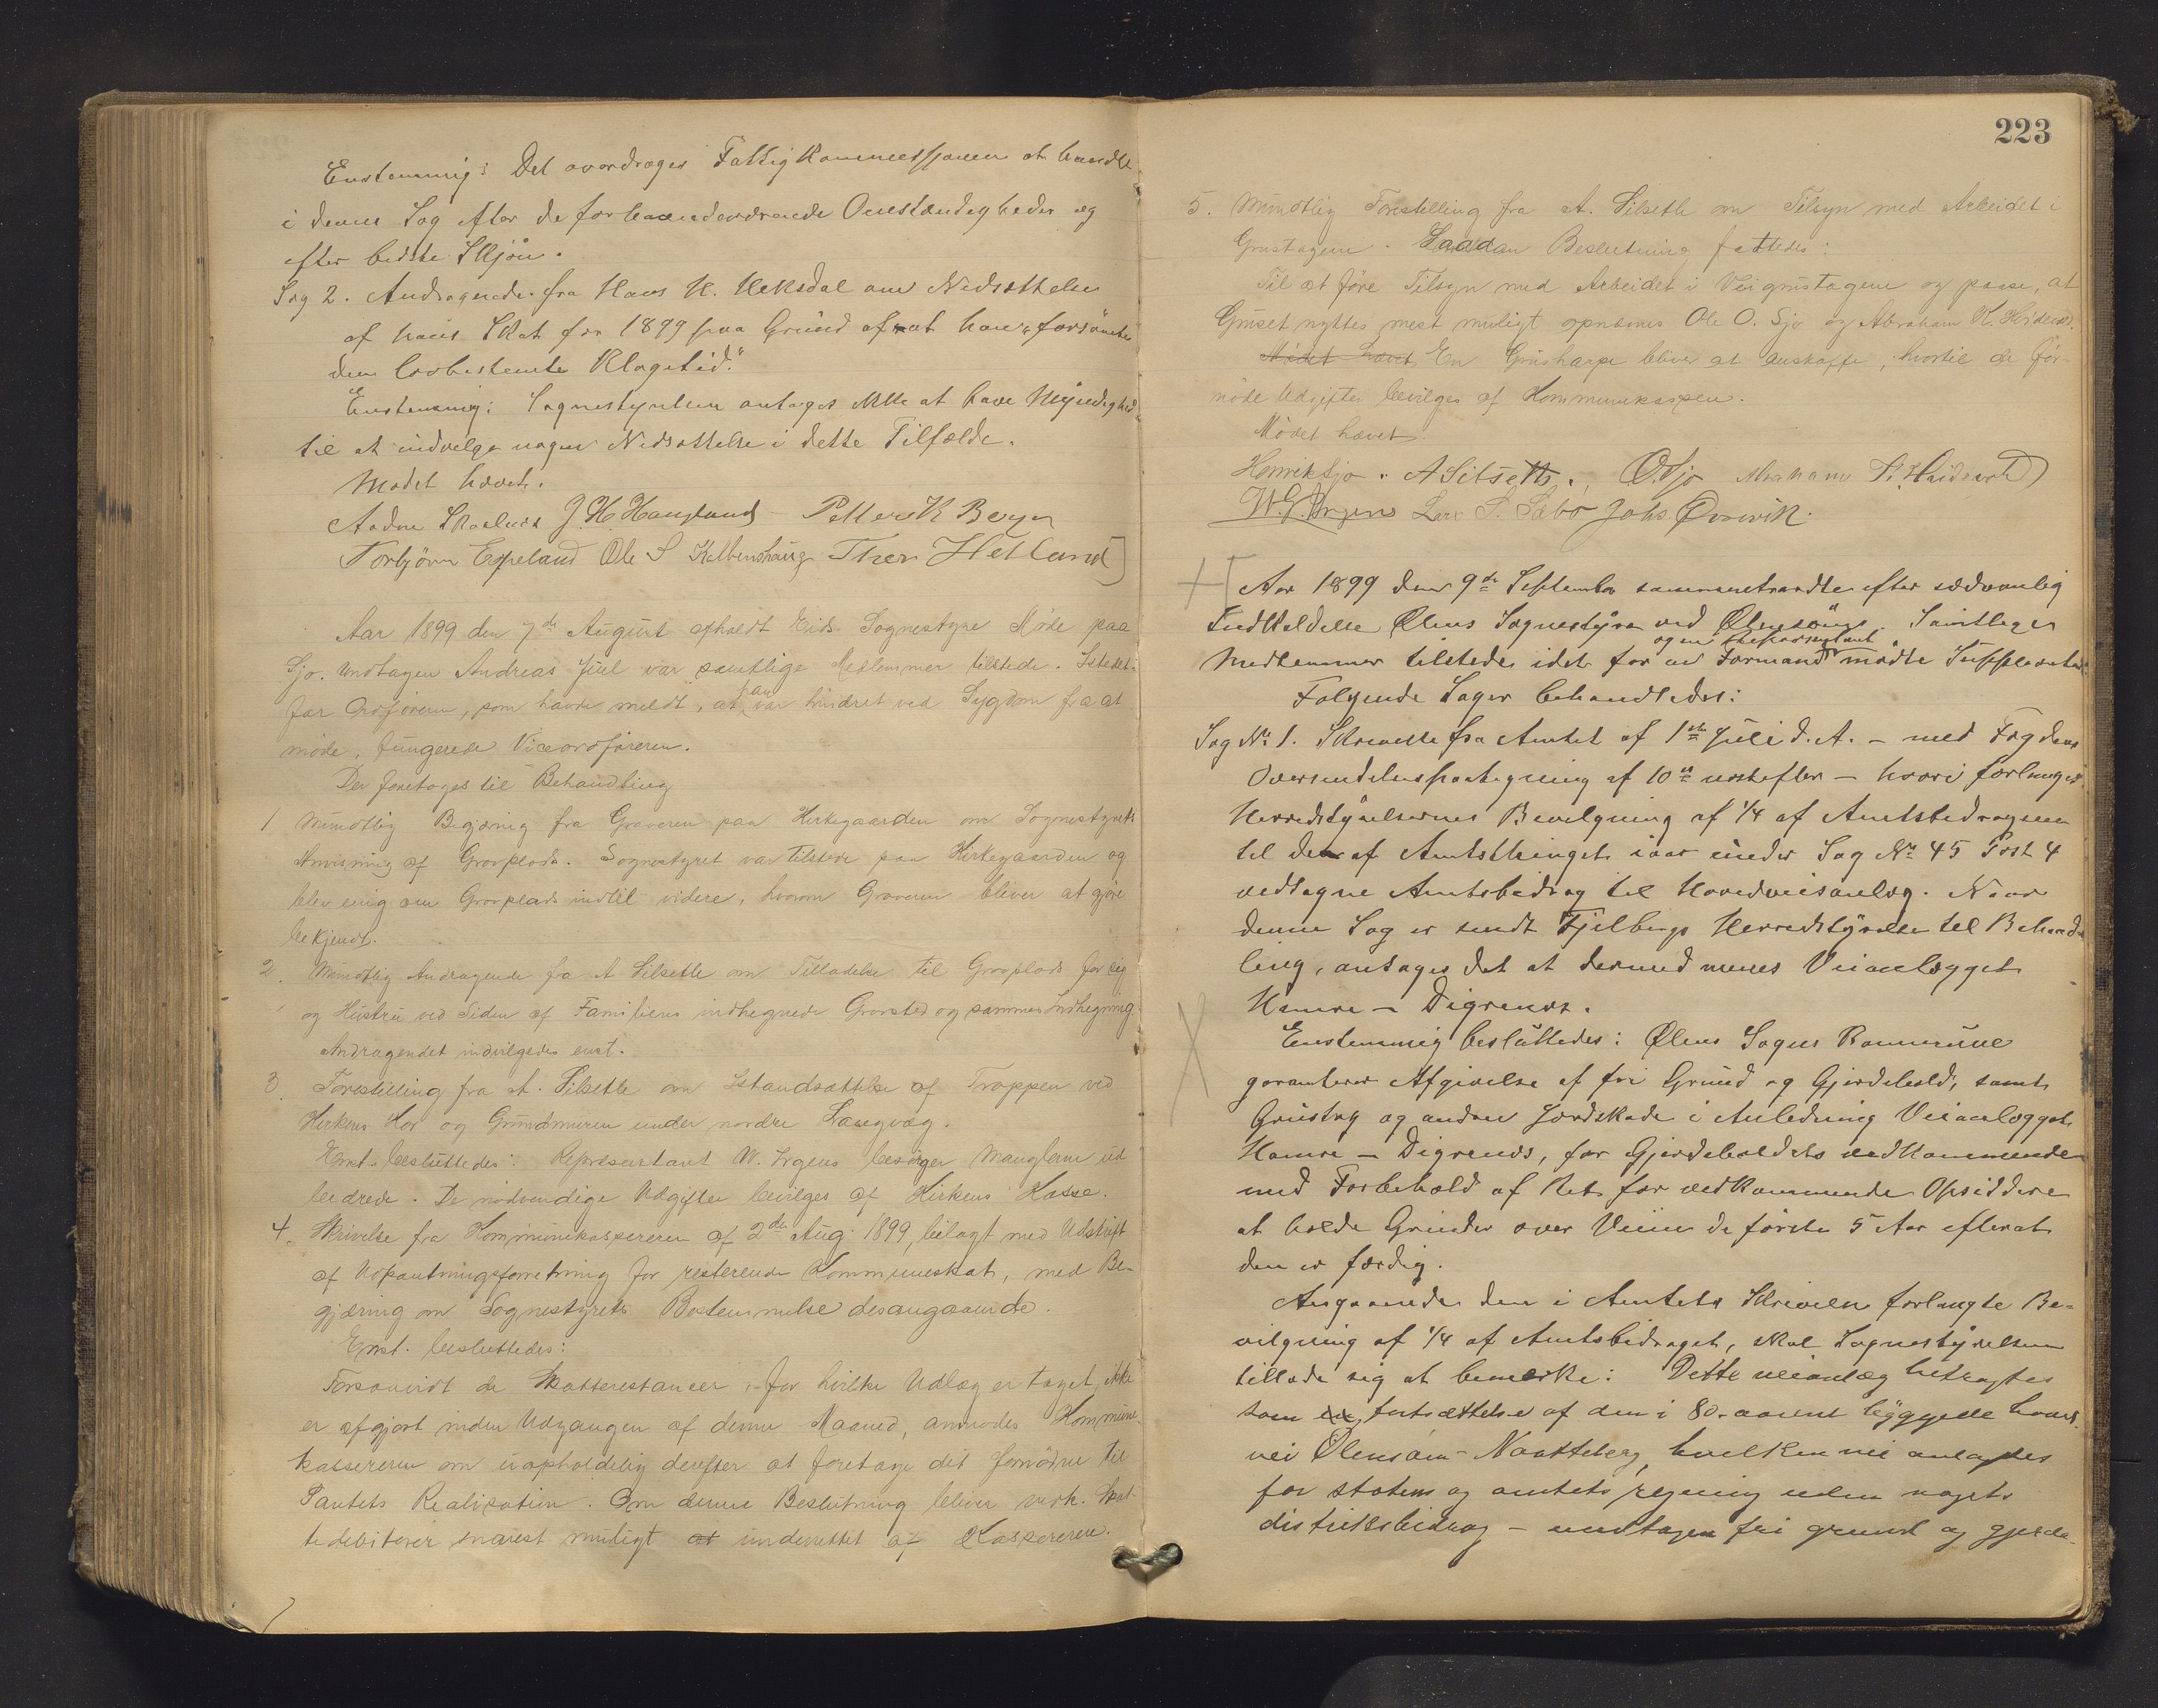 Enstemmig: Det overdrages Fattigkommissjonen at handle
i denne Sag efter de forhaandenværende Omstændigheder og
efter bedste Skjøn.
Sag 2. Andragende fra Hans H. Heksdal om Nedsættelse
af hans Skat for 1899 paa Grund af at han "forsømte
den lovbestemte Klagetid."
Enstemmig: Sognestyrelsen antages ikke at have Myndighed
til at indvilge nogen Nedsættelse i dette Tilfælde.
Mødet hævet.
Aadne J H Haugland Petter K Berge
Torbjørn Espeland Ole S Thor Hetland
Aar 1899 den 7de August afholdt Eids Sognestyre Møde paa
Sjo. Undtagen Andreas Juel var samtlige Medlemmer tilstede. Istedet-
for Ordføreren, som havde meldt, at han var hindret ved Sygdom fra at
møde, fungerede Viceordføreren.
Der foretoges til Behandling
1 Mundtlig Begjæring fra Graveren paa Kirkegaarden om Sognestyrets
Anvisning af Gravplads. Sognestyret var tilstede paa Kirkegaarden og
blev enig om Gravplads indtil videre, hvorom Graveren bliver at gjøre
bekjendt.
2. Mundtlig Andragende fra A Silseth om Tilladelse til Gravplads for sig
og Hustru ved Siden af Familiens indhegnede Gravsted og sammes Indhegning
Andragendet indvilgedes enst.
3. Forestilling fra A. Silseth om Istandsættelse af Trappen ved
Kirkens Kor og Grundmuren under nordre Langvæg.
Enst. besluttedes: Repræsentant W. Irgens besørger Manglerne ud
bedrede. De nødvendige Udgifter bevilges af Kirkens Kasse.
4. Skrivelse fra Kommunekassereren af 2den Aug. 1899, bilagt med Udskrift
af Udpantningsforretning for resterende Kommuneskat, med Be-
gjæring om Sognestyrets Bestemmelse desangaaende.
Enst. besluttedes:
Forsaavidt de Skatterestancer, for hvilke Udlæg er taget, ikke
er afgjort inden Udgangen af denne Maaned, anmodes Kommune-
kassereren om uopholdelig derefter at foretage det fornødne til
Pantets Realisation. Om denne Beslutning bliver vedk. Skat-
tedebitorer snarest muligt at underrettet af Kassereren.
223
5. Mundtlig Forestilling fra A. Silseth om Tilsyn med Arbeidet i
Grustagene. Saadan Beslutning fattedes:
Til at føre Tilsyn med Arbeidet i Veigrustagene og passe, at
Gruset nyttes mest muligt opnævnes Ole O. Sjo og Abraham H.
Mødet hævet En Grusharpe bliver at anskaffe, hvortil de for-
nødne Udgifter bevilges af Kommunekassen.
Mødet hævet
Henrik Sjo. A Silseth. O. Sjo Abraham
W. G. Irgens Lars S. Sæbø Johs Østevik.
Aar 1899 den 9de September sammentraadte efter sædvanlig
Indkaldelse Ølens Sognestyre ved Ølensøen. Samtlige
og en Repræsentant
Medlemmer tilstede idet for en Formand mødte Suppleanter.
Følgende Sager behandledes:
Sag No 1. Skrivelse fra Amtet af 1ste Juli d. A. – med Fogdens
Oversendelsespaategning af 10de næstefter – hvori forlanges
Herredstyrelsernes Bevilgning af 1/4 af Amtsbidragene
til de af Amtsthinget iaar under Sag No 45 Post 4
vedtagne Amtsbidrag til Hovedveisanlæg. Naar
denne Sag er sendt Fjelbergs Herredstyrelse til Behand
ling, antages det at dermed menes Veianlægget
Hamre – Digrenæs.
Enstemmig besluttedes: Ølens Sogns Kommune
garanterer Afgivelse af fri Grund og Gjerdehold, samt
Grustag og anden Jordskade i Anledning Veianlægget
Hamre – Digrenæs, for Gjerdeholdets vedkommende
med Forbehold af Ret for vedkommende Opsiddere
at holde Grinder over Veien de første 5 Aar efterat
den er færdig.
Angaaende den i Amtets Skrivelse forlangte Be-
vilgning af 1/4 af Amtsbidraget, skal Sognestyrelsen
tillade sig at bemerke: Dette veianlæg betragtes
som fortsættelse af den i 80-aarene byggede hoved-
vei Ølensøen – Naatteberg, hvilken vei anlagdes
for statens og amtets regning uden noget
distriktsbidrag – undtagen fri grund og gjerde-